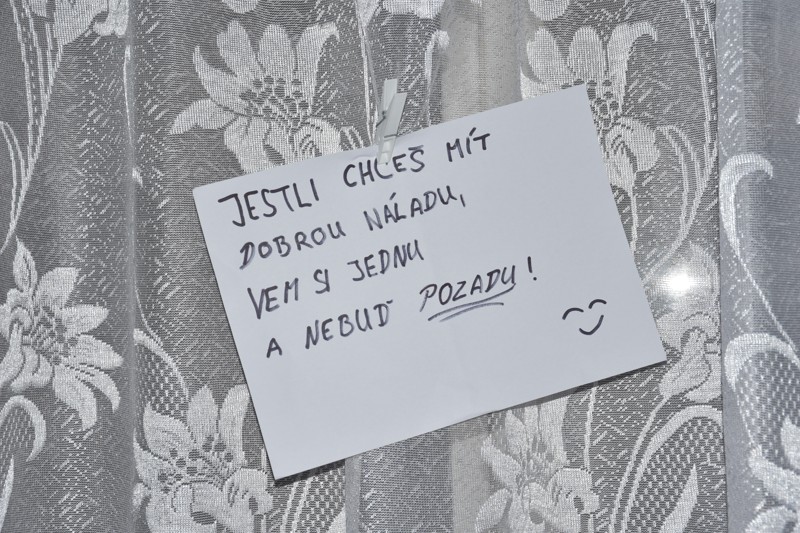 JESTLI CHCEŠ MÍT
DOBROU NÁLADU,
VEM SI JEDNU
A NEBUĎ POZADU!